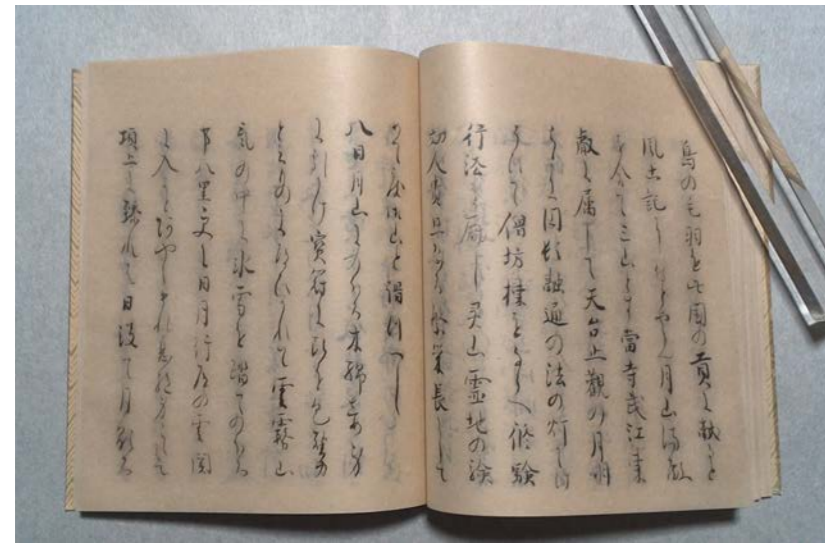 鳥の毛羽を此国の貢に献ると
風土記に侍とやらん月山湯殿
を合て三山とす當寺武江東
叡に属して天台止觀の月明
らかに円頓融通の法の灯かゝけ
そひて僧坊棟をならへ修験
行法を励し灵山靈地の験
効人貴且恐る繁榮長にして
めて度御山と謂つへし
八日月山にのほる木綿しめ身
に引かけ寳冠に頭を包強力
と云ものに道ひかれて雲霧山
気の中に氷雪を踏てのほる
事八里更に日月行道の雲関
に入かとあやしまれ息絶身こゝえて
頂上に臻れは日没て月顕る